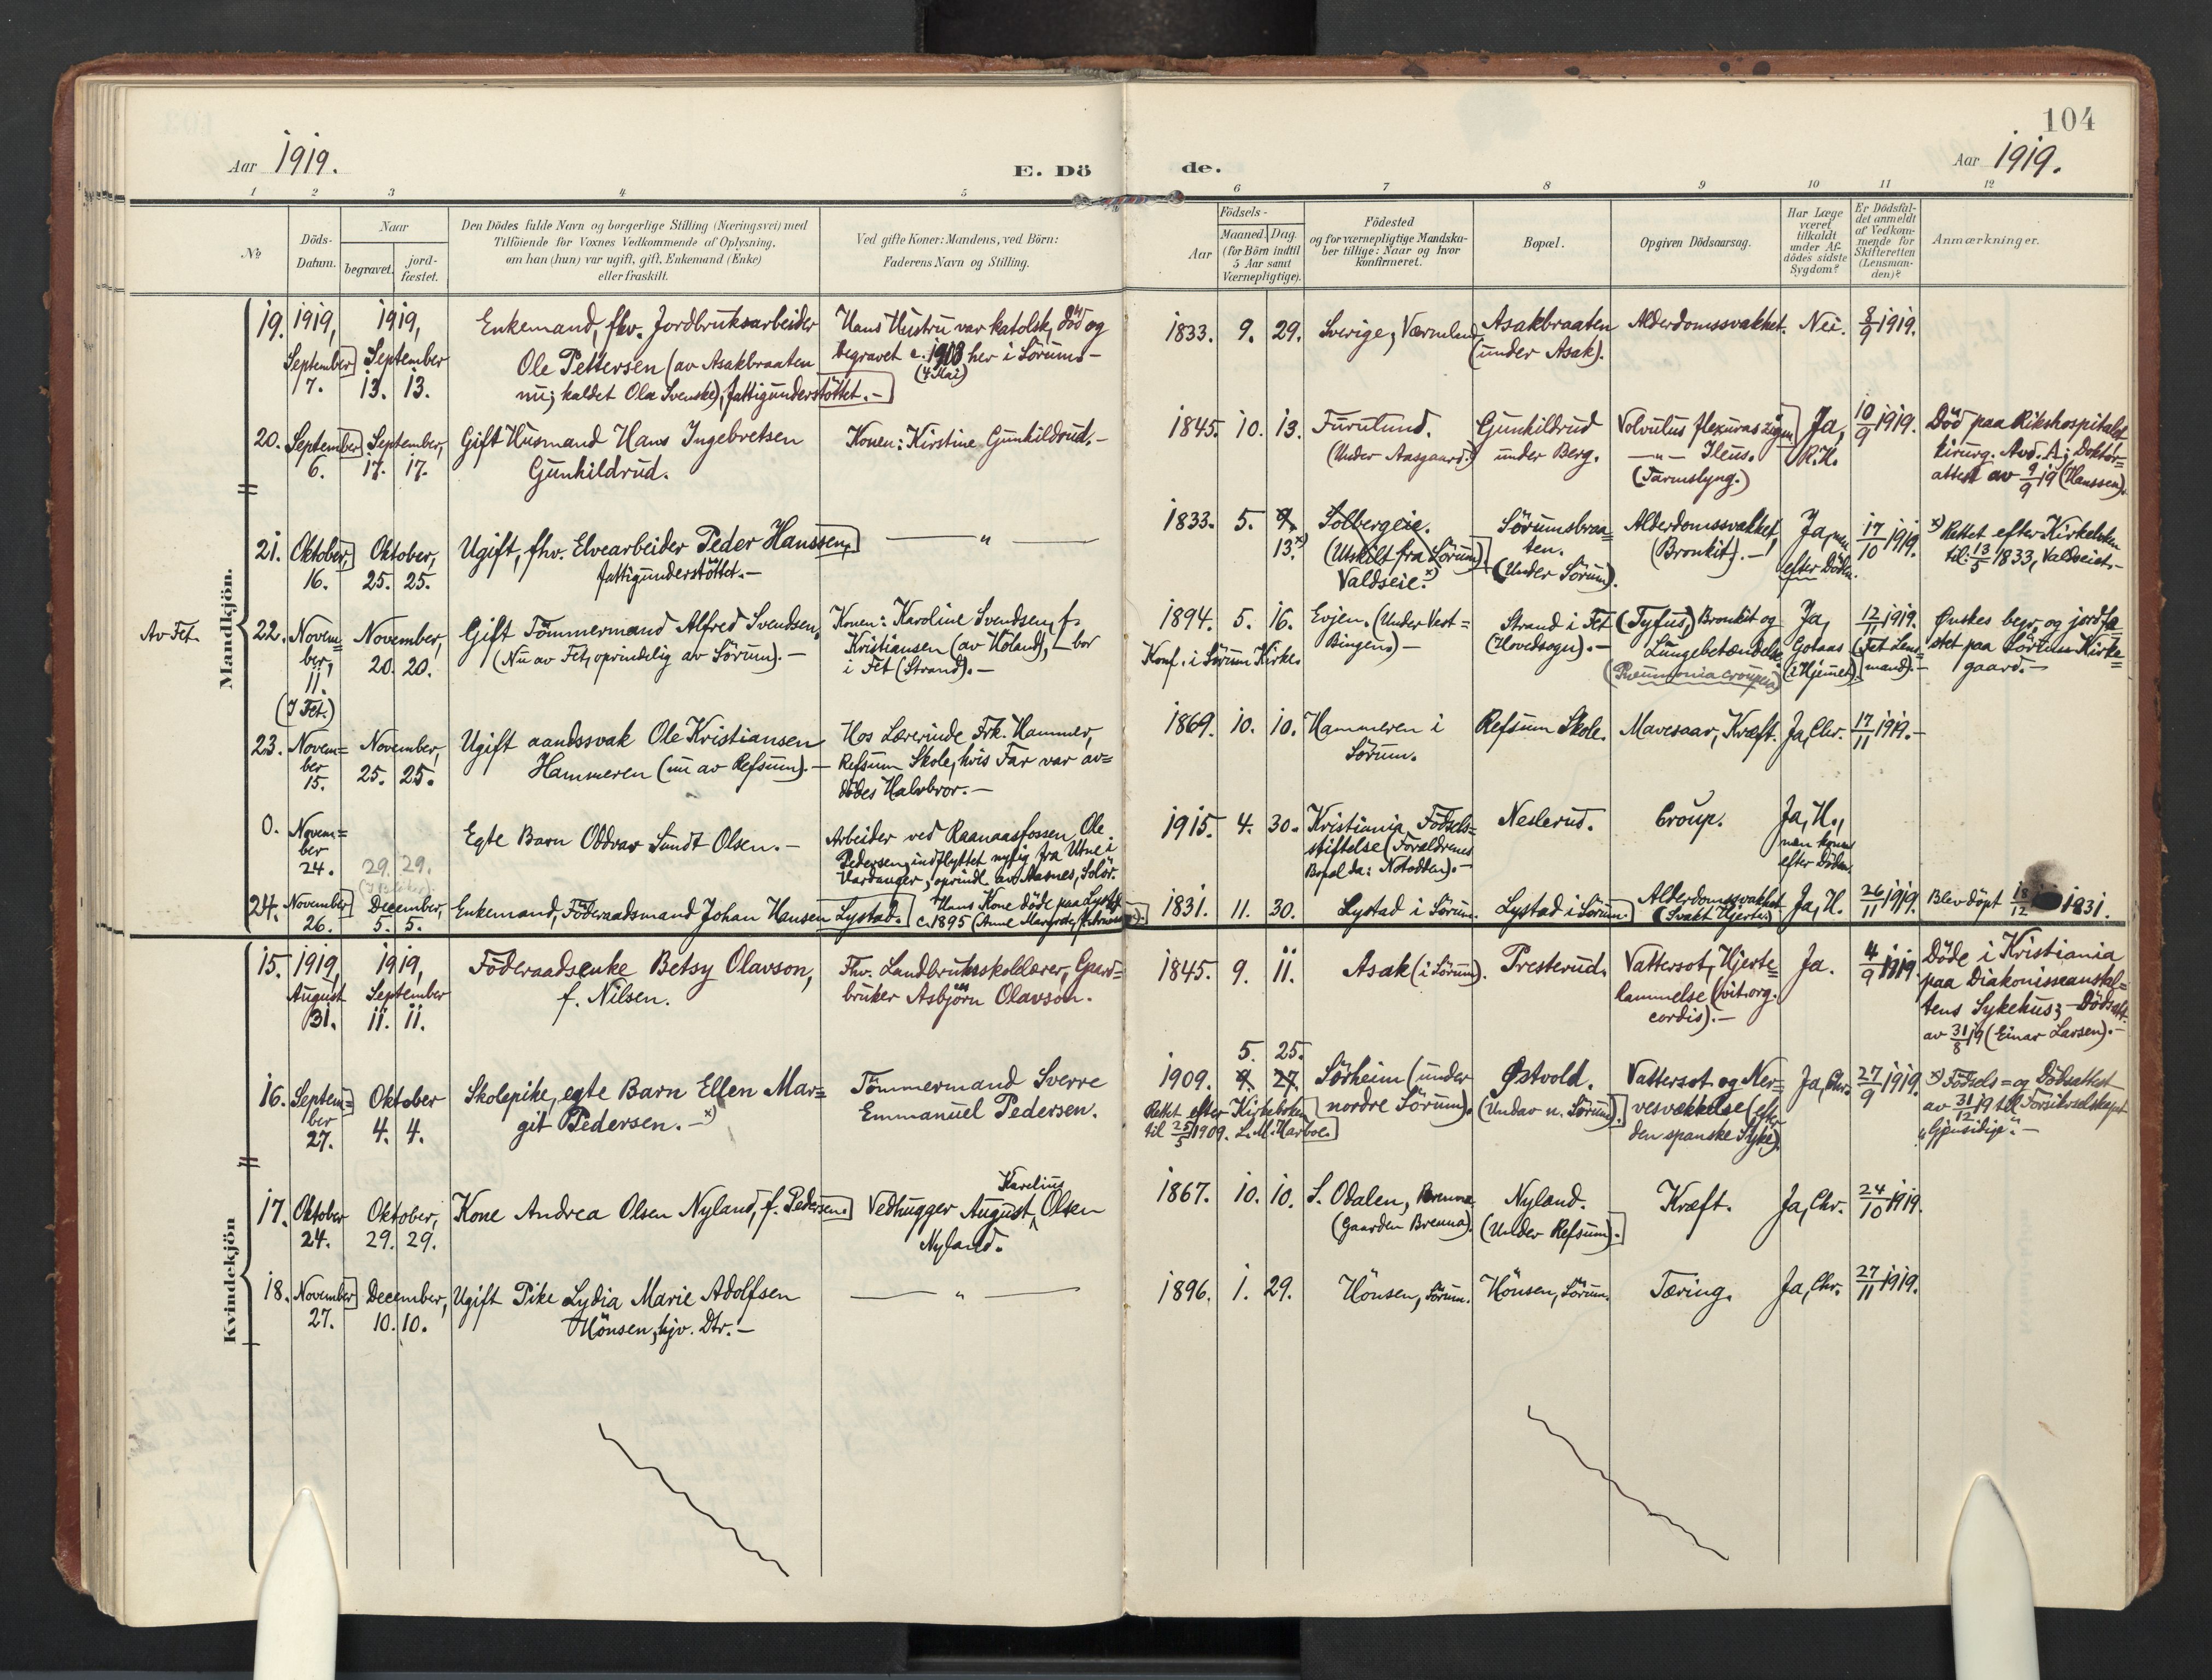 104
Aar 1919.
E. Dö
de.
Aar 1919.
1 2 3 4 5 6 7 8 9 10 11 12
No
Döds-
Datum.
Naar
begravet.
jord-
fæstet.
Den Dödes fulde Navn og borgerlige Stilling (Næringsvei) med
Tilföiende for Voxnes Vedkommende af Oplysning,
om han (hun) var ugift, gift, Enkemand (Enke)
eller fraskilt.
Ved gifte Koner: Mandens, ved Börn:
Faderens Navn og Stilling.
Födsels-
Aar
Maaned. Dag.
(for Börn indtil
5 Aar samt
Værnepligtige).
Födested
og for værnepligtige Mandska-
ber tillige: Naar og hvor
konfirmeret.
Bopæl.
Opgiven Dödsaarsag.
Har Læge
været
tilkaldt
under Af-
dödes sidste
Sygdom?
Er Dödsfal-
det anmeldt
af Vedkom-
mende for
Skifteretten
(Lensman-
den)?
Anmærkninger.
Mandkjön.
19.
1919,
September
7.
1919,
September
13. 13.
Enkemand, fhv. Jordbruksarbeider
Ole Pettersen (av Asakbraaten
nu; kaldet Ola Svenske), fattigunderstöttet.-
Hans Hustru var katolsk, död og
begravet c. 1918 her i Sörum.-
(4 Mai)
1833. 9. 29.
Sverige, Værmland
Asakbraaten
(under Asak).
Alderdomssvakhet.
Nei.
8/9 1919.
20.
September
6.
September,
17. 17.
Gift Husmand Hans Ingebretsen
Gunhildrud.
Konen: Kirstine Gunhildrud.-
1845. 10. 13.
Furulund.
(Under Aasgaard.)
Gunhildrud
under Berg.
Volvulus flexuras sigm.
-"- Ileus.
(Tarmslyng.)
Ja,
R.H.
10/9 1919.
Död paa Rikshospitalet
kirurg. Avd. A; Doktor=
attest av 9/9 19 (Hanssen).
21.
Oktober,
16.
Oktober,
25. 25.
Ugift, fhv. Elvearbeider Peder Hanssen,
fattigunderstöttet.-
— " —
1833. 5. 9.
13.x)
Solbergeie.
(Utskilt fra Sörum)
Valdseie.x)
Sörumsbraa=
ten.
(Under Sörum).
Alderdomssvakhet
(Bronkit).-
Ja, men
efter Döden.
17/10 1919.
x) Rettet efter Kirkeboken
til: 13/5 1833, Valdseiet.-
Av Fet.
22.
Novem=
ber,
11.
(I Fet.)
November,
20. 20.
Gift Tömmermand Alfred Svendsen,
(Nu av Fet, oprindelig av Sörum).-
Konen: Karoline Svendsen, f.
Kristiansen (av Höland), - bor
i Fet (Strand).-
1894. 5. 16.
Konf. i Sörum Kirke.
Evjen. (Under Vest=
Bingen)-
Strand i Fet
(Hovedsogn).-
(Tyfus,) Bronkit og
Lungebetændelse
(Pneumonia crouposa)
Ja,
Gotaas
(i Hjemmet).
12/11 1919.
(Fet Lens=
mand).-
Ønskes begr. og jordfæ
stet paa Sörum Kirke=
gaard.-
23.
Novem=
ber
15.
November,
25. 25.
Ugift aandssvak Ole Kristiansen
Hammeren (nu av Refsum).-
Hos Lærerinde Frk. Hammer,
Refsum Skole, hvis Far var av=
dödes Halvbror.-
1869. 10. 10.
Hammeren i
Sörum.
Refsum Skole.
Mavesaar, Kræft.
Ja, Chr.
17/11 1919.-
0.
Novem=
ber
24.
29. 29.
Egte Barn Oddvar Sundt Olsen.-
Arbeider ved Raanaasfossen, Ole
Pedersen, indflyttet nylig fra Utne i
Hardanger; oprindl. av Aasnes, Solör.
1915. 4. 30.
Kristiania Födsels=
stiftelse (Forældrenes
Bopæl da: Notodden).-
Neslerud.
Croup.
Ja, H.,
men kom
efter Döden.
24.
November
26.
December,
5. 5.
Enkemand, Föderaadsmand Johan Hansen Lystad.
Hans Kone döde paa Lystad
c. 1895
1831. 11. 30.
Lystad i Sörum.
Lystad i Sörum.
Alderdomssvakhet
(Svakt Hjerte)
Ja, H.
26/11 1919.
Blev döpt 18/12 1831.
Kvindekjön
15.
1919,
August
31.
1919,
September
11. 11.
Föderaadsenke Betsy Olavson,
f. Nilsen.
Fhv. Landbruksskolelærer, Gaard=
bruker Asbjörn Olavson.
1845. 9. 11.
Asak (i Sörum).
Presterud.
Vattersot, Hjerte=
lammelse (vit. org.
cordis).-
Ja.
4/9 1919.
Döde i Kristiania
paa Diakonisseanstal=
tens Sykehus; - Dödsatt.
av 31/8 19 (Einar Larsen).-
16.
Septem=
ber
27.
Oktober
4. 4.
Skolepike, egte Barn Ellen Mar=
git Pedersen.-x)
Tömmermand Sverre
Emmanuel Pedersen.
5. 25.
1909. 9. 27.
Rettet efter Kirkeboken
til 25/5 1909. L.M. Harboe.
Sörheim (under
nordre Sörum).
Østvold.
(Undav n. Sörum).
Vattersot og Ner=
vesvækkelse (efter
den spanske Syke).
Ja, Chr.
27/9 1919.
x) Födsels= og Dödsattest
av 31/12 19 til Forsikrselskapet
"Gjensidige".-
17.
Oktober
24.
Oktober,
29. 29.
Kone Andrea Olsen Nyland, f. Pedersen.
Karelius
Vedhugger August Olsen
Nyland.
1867. 10. 10.
S. Odalen, Brenna
(Gaarden Brenna).
Nyland.
(Under Refsum).
Kræft.
Ja, Chr.
24/10 1919.
18.
November
27.
December,
10. 10.
Ugift Pike Lydia Marie Adolfsen
Hönsen, hjv. Dtr.-
— " —
1896. 1. 29.
Hönsen, Sörum.
Hönsen, Sörum.
Tæring.
Ja, Chr.
27/11 1919.